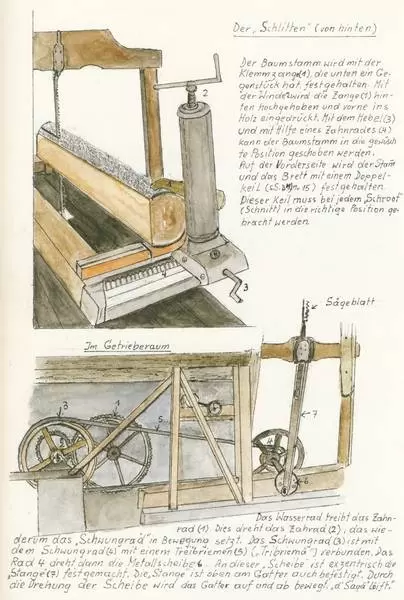 Der „Schlitten" (von hinten)
Der Baumstamm wird mit der
Klemmzange(1), die unten ein Ge-
genstück hat, festgehalten. Mit
der Winde wird die Zange(1) hin-
ten hochgehoben und vorne ins
Holz eingedrückt. Mit dem Hebel(3)
und mit Hilfe eines Zahnrades (4)
kann der Baumstamm in die gewüsch-
te Position geschoben werden.
Auf der Vorderseite wird der Stam
und das Brett mit einem Doppel-
keil (s.S. 15) festgehalten.
Dieser Keil muss bei jedem „Schroot"
(Schnitt) in die richtige Position ge-
bracht werden.
2
4
3
Im Getrieberaum
Sägeblatt
3
1
5
2
4
7
6
Das Wasserrad treibt das Zahn-
rad (1). Dies dreht das Zahrad (2), das wie-
derum das „Schwungrad" in Bewegung setzt. Das Schwungrad (3) ist mit
dem Schwungrad (4) mit einem Treibriemen (5) („Tribriemä") verbunden. Das
Rad 4 dreht dann die Metallscheibe 6. An dieser Scheibe ist exzentrisch die
„Stange (7) festgemacht. Die „Stange ist oben am Gatter auch befestigt. Durch
die Drehung der Scheibe wird das Gatter auf und ab bewegt. „d Saga läuft".